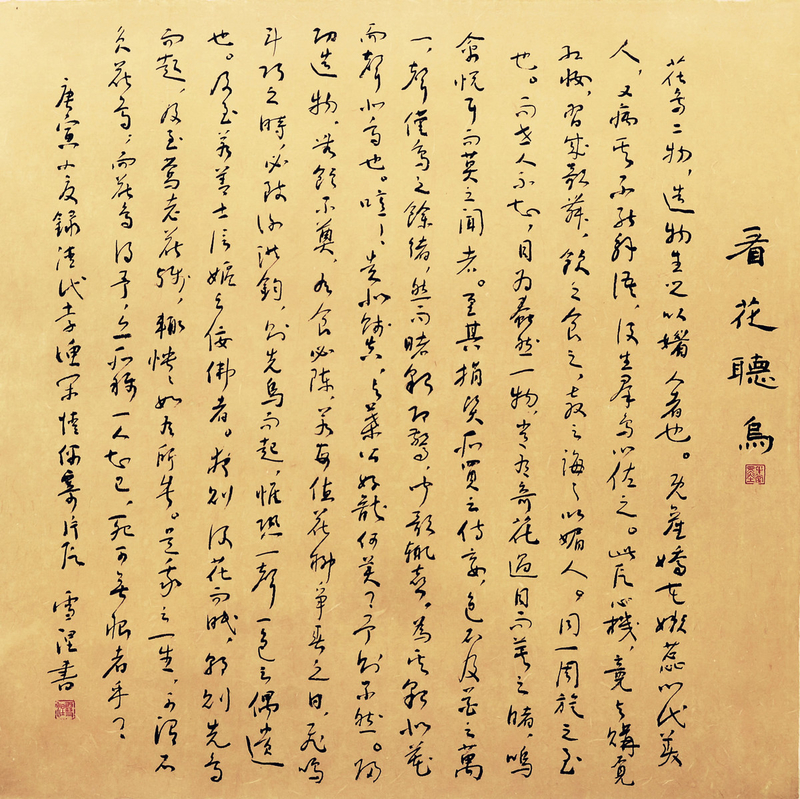 看花聽鳥
花鳥二物,造物生之以媚人者也。既產嬌花嫩蕊以代美
人,又病其不能解語,復生群鳥以佐之。此段心機,竟與購覓
紅妝,習成歌舞,飲之食之,教之誨之以媚人。同一周旋之至
也。而世人不知,目為蠢然一物,常有奇花過目而莫之睹,鳴
禽悅耳而莫之聞者。至其捐資所買之侍妾,色不及花之萬
一,聲僅鳥之餘緒,然而睹貌即驚,聞歌輒喜,為其貌似花
而聲似鳥也。噫!貴似賤真,與葉公好龍何異?予則不然。歸
功造物,無飲不奠,有食必陳,若每值花柳爭妍之日,飛鳴
鬥巧之時,必致謝洪鈞,則先鳥而起,惟恐一聲一色之偶遺
也。及至若善士信嫗之佞佛者。夜則後花而眠,朝則先鳥
而起,及至鶯老花殘,輒怏怏如有所失。是我之一生,可謂不
負花鳥;而花鳥得予,亦所稱一人知己,死可無恨者乎?
庚寅小夏錄清代李漁閑情偶寄片段 雪書